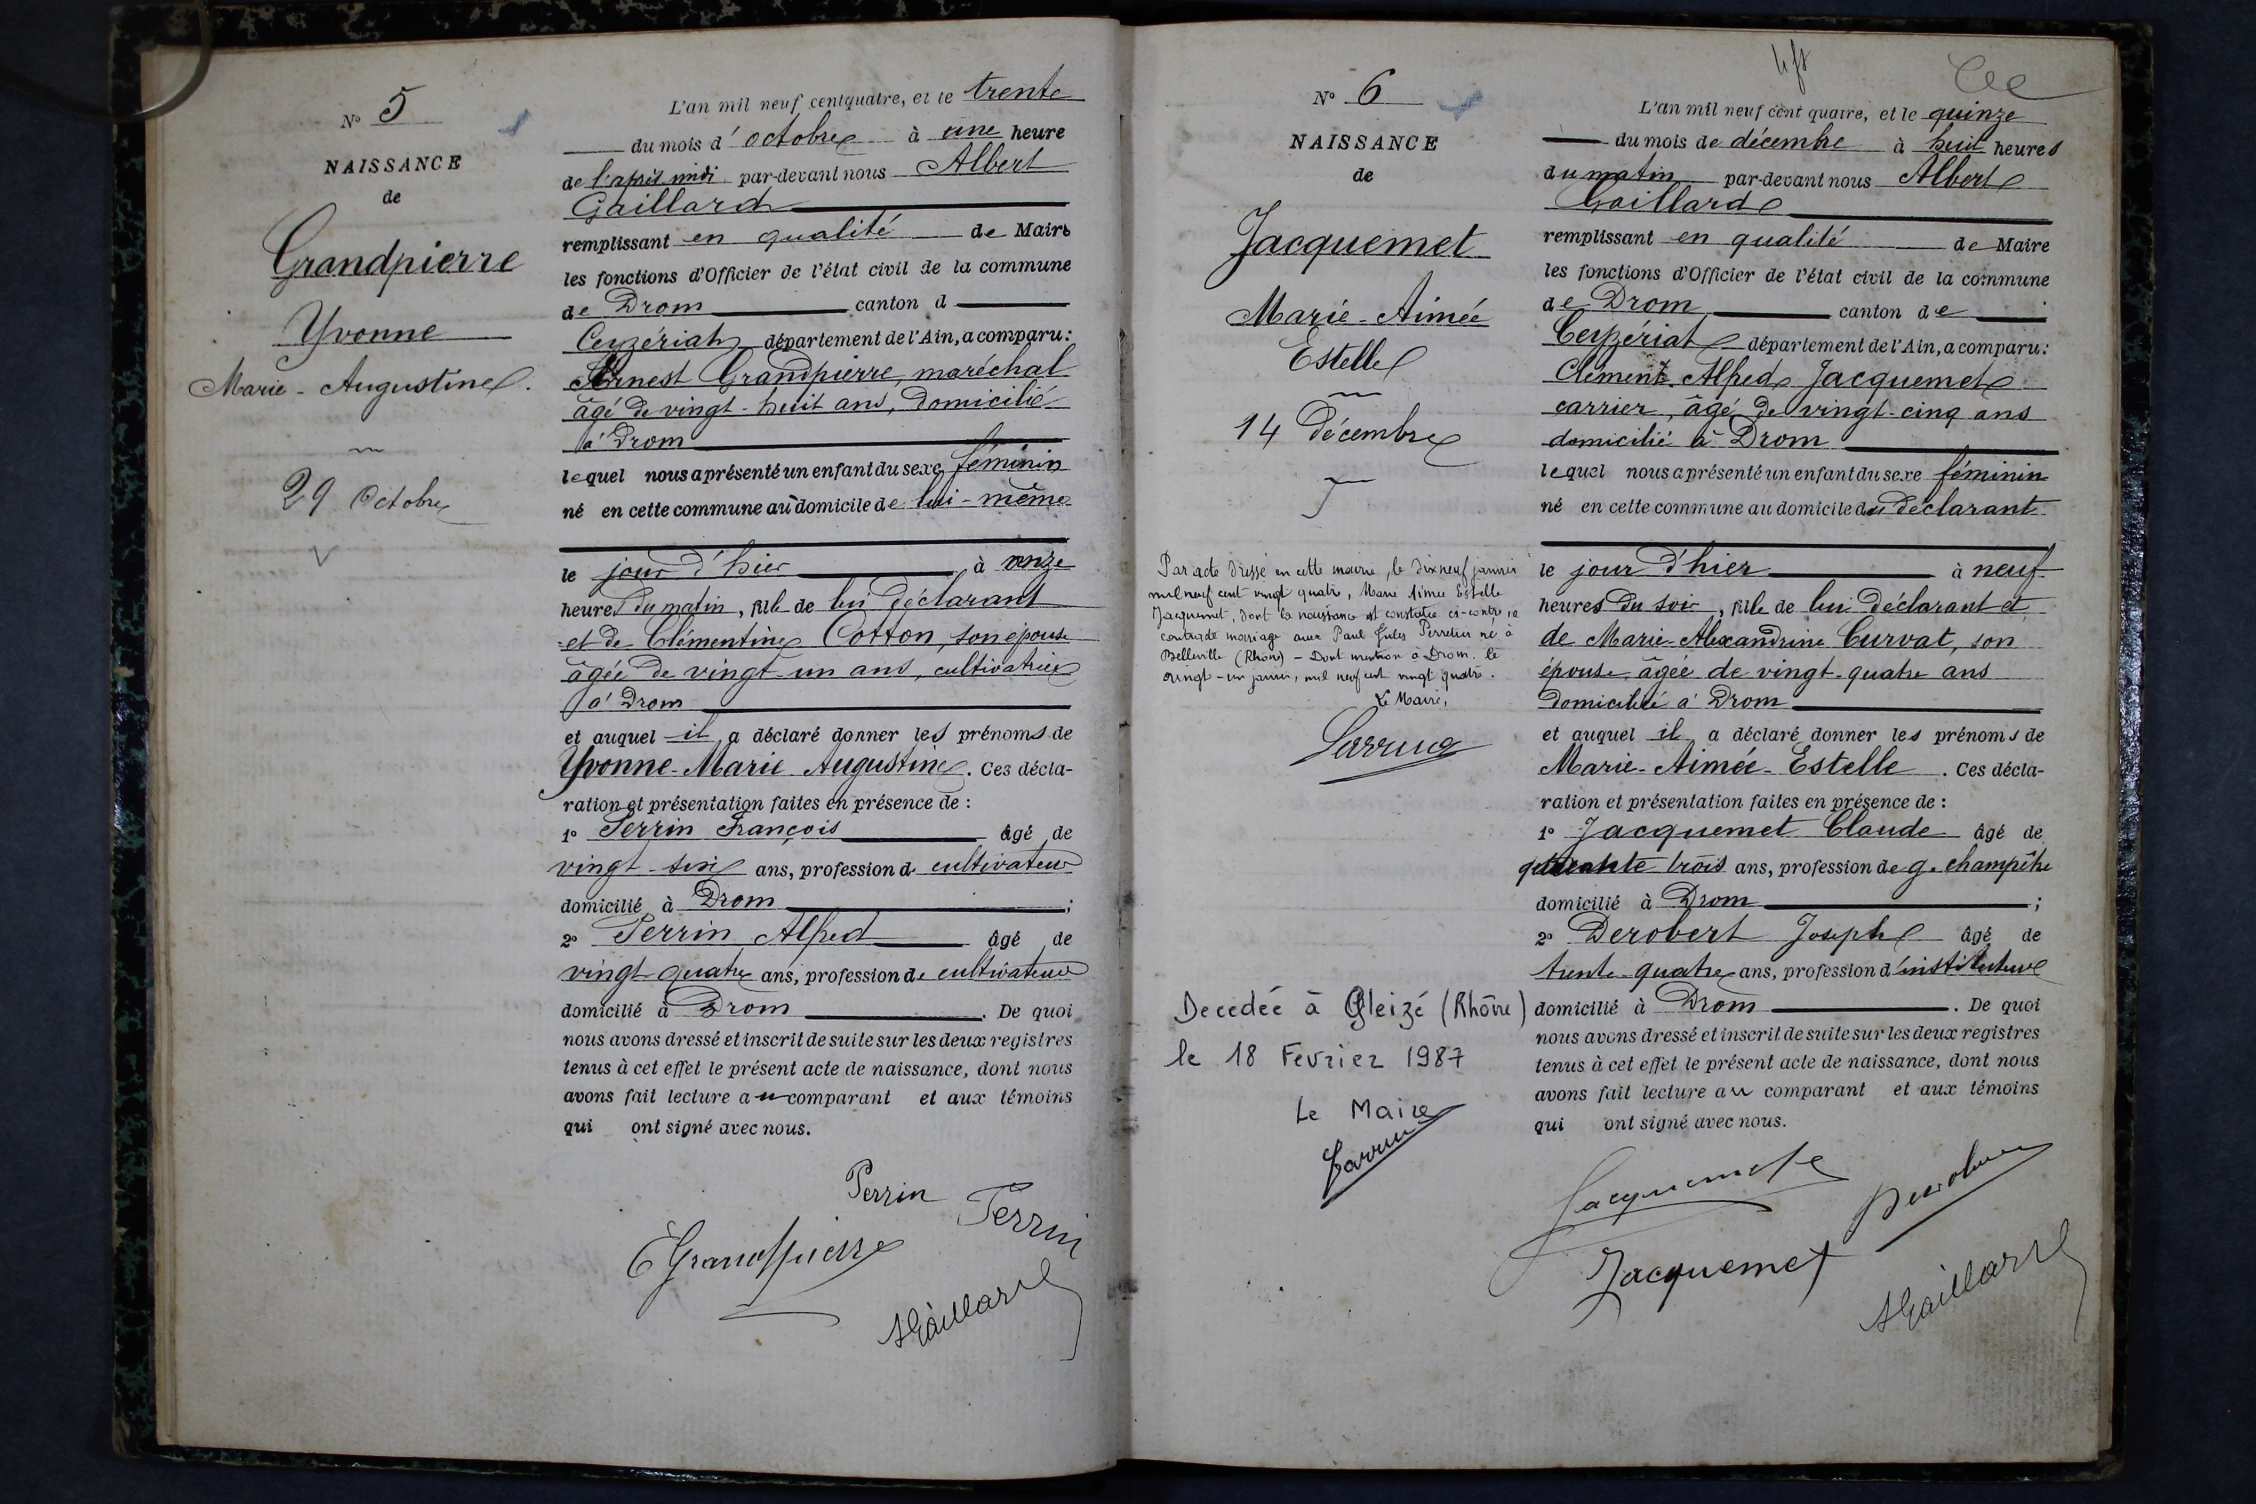 N° 5
NAISSANCE
de
Grandpierre
Yvonne
Marie - Augustine.
29 Octobre
L'an mil neuf cent quatre, et le trente
du mois d'octobre à une heure
de l'après midi par-devant nous Albert
Gaillard
remplissant en qualité de Maire
les fonctions d'Officier de l'état civil de la commune
de Drom canton d
Ceyzériat département de l'Ain, a comparu :
Ernest Grandpierre, maréchal
âgé de vingt-huit ans, domicilié
à Drom
lequel nous a présenté un enfant du sexe féminin
né en cette commune au domicile de lui-même
le jour d'hier à onze
heures du matin, fille de lui déclarant
et de Clémentine Cotton, son épouse
âgée de vingt-un ans, cultivatrice
à Drom
et auquel il a déclaré donner les prénoms de
Yvonne-Marie Augustine. Ces décla-
ration et présentation faites en présence de :
1° Perrin François âgé de
vingt-six ans, profession d. cultivateur
domicilié à Drom ;
2° Perrin Alfred âgé de
vingt-quatre ans, profession de cultivateur
domicilié à Drom. De quoi
nous avons dressé et inscrit de suite sur les deux registres
tenus à cet effet le présent acte de naissance, dont nous
avons fait lecture au comparant et aux témoins
qui ont signé avec nous.
Perrin
Perrin
E Grandpierre
A Gaillard
N° 6
NAISSANCE
de
Jacquemet
Marie-Aimée
Estelle
14 décembre
Par acte dressé en cette mairie, le dix neuf janvier
mil neuf cent vingt quatre, Marie Aimée Estelle
Jacquemet, dont la naissance est constatée ci-contre, a
contracté mariage avec Paul Jules né à
Belleville (Rhône) - Dont mention à Drom. le
vingt-un janvier, mil neuf cent vingt quatre.
Le Maire,
Decedée à Gleizé (Rhône)
le 18 Fevrier 1987
Le Maire
L'an mil neuf cent quatre, et le quinze
du mois de décembre à huit heures
du matin par-devant nous Albert
Gaillard
remplissant en qualité de Maire
les fonctions d'Officier de l'état civil de la commune
de Drom canton de
Ceyzériat département de l'Ain, a comparu :
Clément Alfred Jacquemet
carrier, âgé de vingt-cinq ans
domicilié à Drom
lequel nous a présenté un enfant du sexe féminin
né en cette commune au domicile du déclarant
le jour d'hier à neuf
heures du soir, fille de lui déclarant et
de Marie-Alexandrine Curvat, son
épouse âgée de vingt-quatre ans
domiciliée à Drom
et auquel il a déclaré donner les prénoms de
Marie-Aimée-Estelle. Ces décla-
ration et présentation faites en présence de :
1° Jacquemet Claude âgé de
quarante trois ans, profession de g. champêtre
domicilié à Drom ;
2° Derobert Joseph âgé de
trente-quatre ans, profession d'instituteur
domicilié à Drom. De quoi
nous avons dressé et inscrit de suite sur les deux registres
tenus à cet effet le présent acte de naissance, dont nous
avons fait lecture au comparant et aux témoins
qui ont signé avec nous.
Jacquemet
Derobert
Jacquemet
A Gaillard